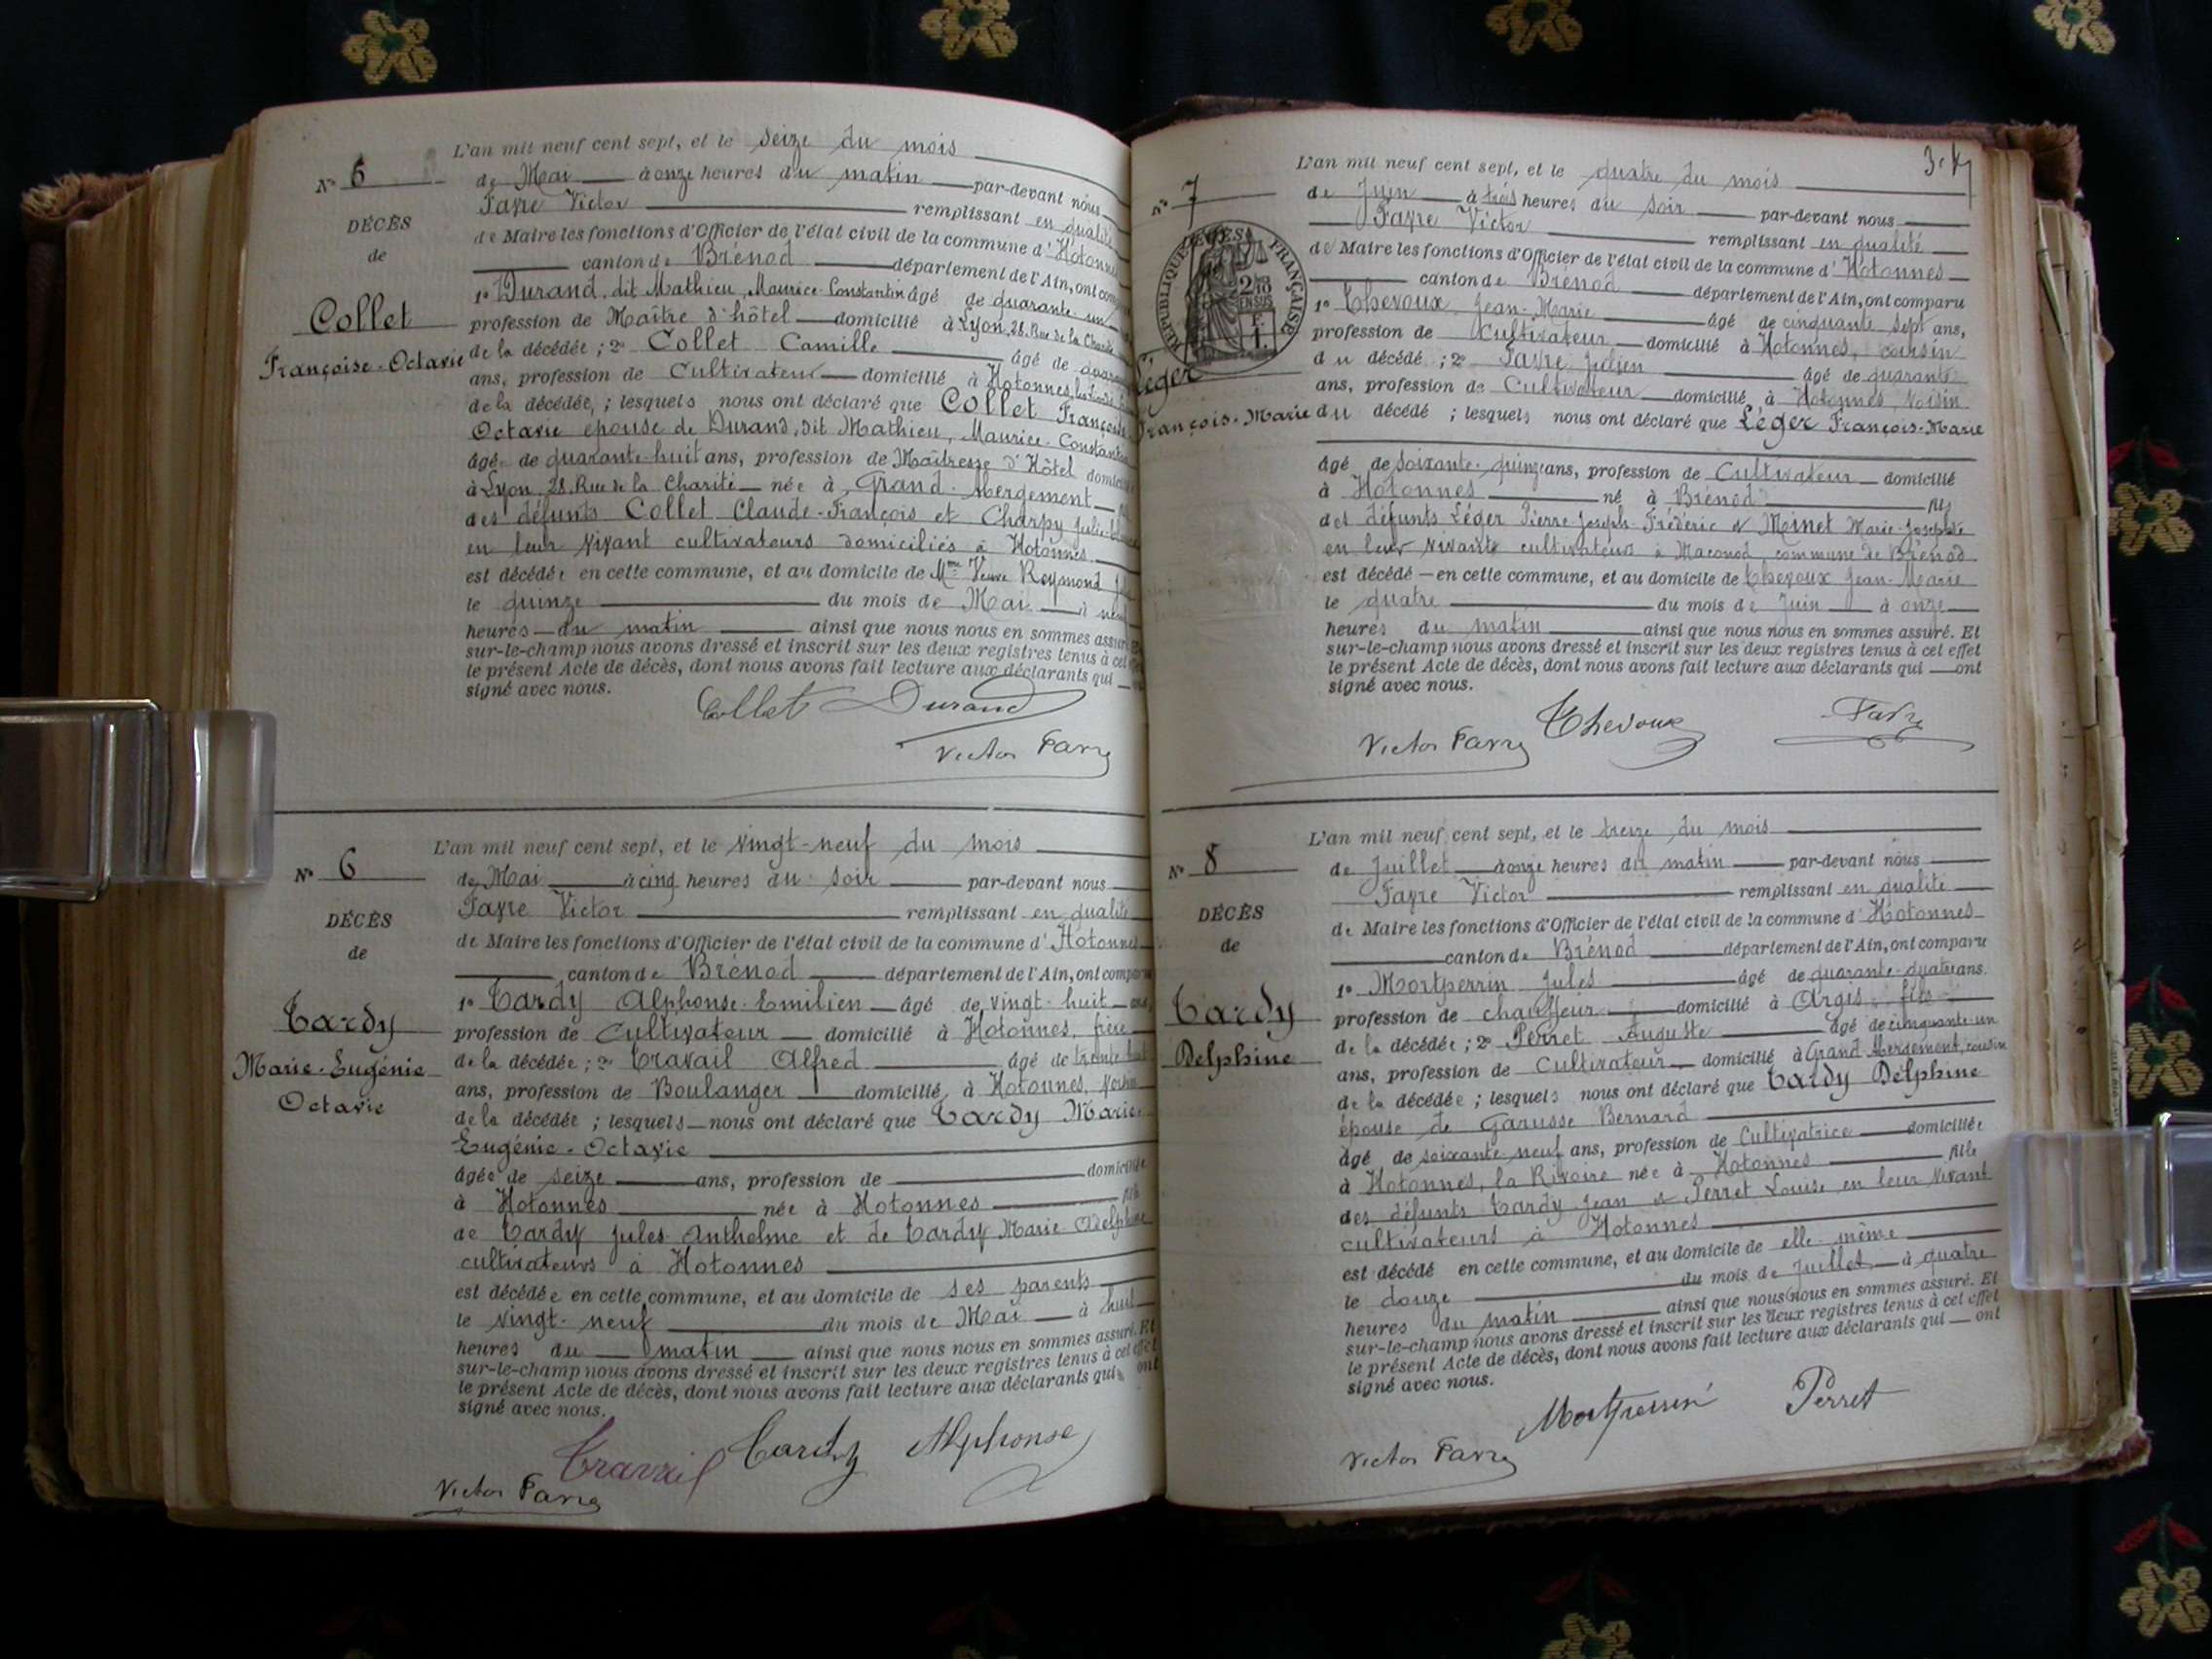 N° 5
DÉCÈS
de
Collet
Françoise-Octavie
L'an mil neuf cent sept, et le seize du mois
de Mai à onze heures du matin par-devant nous
Favre Victor remplissant en qualité
de Maire les fonctions d'Officier de l'état civil de la commune d'Hotonnes
canton de Brénod département de l'Ain, ont
1° Durand, dit Mathieu, Maurice-Constantin âgé de quarante-un
profession de Maître d'hôtel domicilié à Lyon, 28, Rue de la Charité
de la décédée ; 2° Collet Camille âgé de
ans, profession de Cultivateur domicilié à Hotonnes,
de la décédée, ; lesquels nous ont déclaré que Collet Françoise
Octavie épouse de Durand, dit Mathieu, Maurice-Constantin
âgée de quarante-huit ans, profession de Maîtresse d'Hôtel
à Lyon, 28, Rue de la Charité née à Grand-Abergement
des défunts Collet Claude-François et Charpy
en leur vivant cultivateurs domiciliés à Hotonnes
est décédée en cette commune, et au domicile de Mme Veuve Reymond
le quinze du mois de Mai à
heures du matin ainsi que nous nous en sommes assuré
sur-le-champ nous avons dressé et inscrit sur les deux registres tenus à cet
le présent Acte de décès, dont nous avons fait lecture aux déclarants qui
signé avec nous.
Collet Durand
Victor Favre
N° 6
DÉCÈS
de
Tardy
Marie-Eugénie
Octavie
L'an mil neuf cent sept, et le vingt-neuf du mois
de Mai à cinq heures du soir par-devant nous
Favre Victor remplissant en qualité
de Maire les fonctions d'Officier de l'état civil de la commune d'Hotonnes
canton de Brénod département de l'Ain, ont comparu
1° Tardy Alphonse-Emilien âgé de vingt-huit ans,
profession de Cultivateur domicilié à Hotonnes, frère
de la décédée ; 2° Travail Alfred âgé de trente huit
ans, profession de Boulanger domicilié à Hotonnes, voisin
de la décédée ; lesquels nous ont déclaré que Tardy Marie-
Eugénie-Octavie
âgée de seize ans, profession de domiciliée
à Hotonnes née à Hotonnes fille
de Tardy Jules Anthelme et de Tardy Marie Adelphine
cultivateurs à Hotonnes
est décédée en cette commune, et au domicile de ses parents
le vingt-neuf du mois de Mai à huit
heures du matin ainsi que nous nous en sommes assuré. Et
sur-le-champ nous avons dressé et inscrit sur les deux registres tenus à cet effet
le présent Acte de décès, dont nous avons fait lecture aux déclarants qui ont
signé avec nous.
Travail Tardy Alphonse
Victor Favre
N° 7
RÉPUBLIQUE FRANÇAISE
2/10 EN SUS
Léger
François-Marie
L'an mil neuf cent sept, et le quatre du mois
de Juin à trois heures du soir par-devant nous
Favre Victor remplissant en qualité
de Maire les fonctions d'Officier de l'état civil de la commune d'Hotonnes
canton de Brénod département de l'Ain, ont comparu
1° Thevoux Jean-Marie âgé de cinquante sept ans,
profession de Cultivateur domicilié à Hotonnes, cousin
du décédé ; 2° Favre Julien âgé de quarante
ans, profession de Cultivateur domicilié à Hotonnes, voisin
du décédé ; lesquels nous ont déclaré que Léger François-Marie
âgé de soixante-quinze ans, profession de Cultivateur domicilié
à Hotonnes né à Brénod fils
des défunts Léger Pierre-Joseph-Frédéric et Moinet Marie-Josephte
en leur vivants cultivateurs à Maconod, commune de Brénod
est décédé en cette commune, et au domicile de Thevoux Jean-Marie
le quatre du mois de Juin à onze
heures du matin ainsi que nous nous en sommes assuré. Et
sur-le-champ nous avons dressé et inscrit sur les deux registres tenus à cet effet
le présent Acte de décès, dont nous avons fait lecture aux déclarants qui ont
signé avec nous.
Victor Favre Thevoux Favre
N° 8
DÉCÈS
de
Tardy
Delphine
L'an mil neuf cent sept, et le treize du mois
de Juillet à onze heures du matin par-devant nous
Favre Victor remplissant en qualité
de Maire les fonctions d'Officier de l'état civil de la commune d'Hotonnes
canton de Brénod département de l'Ain, ont comparu
1° Montperrin Jules âgé de quarante-quatre ans.
profession de chauffeur domicilié à Argis, fils
de la décédée ; 2° Perret Auguste âgé de cinquante-un
ans, profession de Cultivateur domicilié à Grand Abergement, cousin
de la décédée ; lesquels nous ont déclaré que Tardy Delphine
épouse de Garusse Bernard
âgé de soixante-neuf ans, profession de Cultivatrice domiciliée
à Hotonnes, la Rivoire née à Hotonnes fille
des défunts Tardy Jean et Perret Louise en leur vivant
cultivateurs à Hotonnes
est décédé en cette commune, et au domicile de elle-même
le douze du mois de Juillet à quatre
heures du matin ainsi que nous nous en sommes assuré. Et
sur-le-champ nous avons dressé et inscrit sur les deux registres tenus à cet effet
le présent Acte de décès, dont nous avons fait lecture aux déclarants qui ont
signé avec nous.
Montperrin Perret
Victor Favre